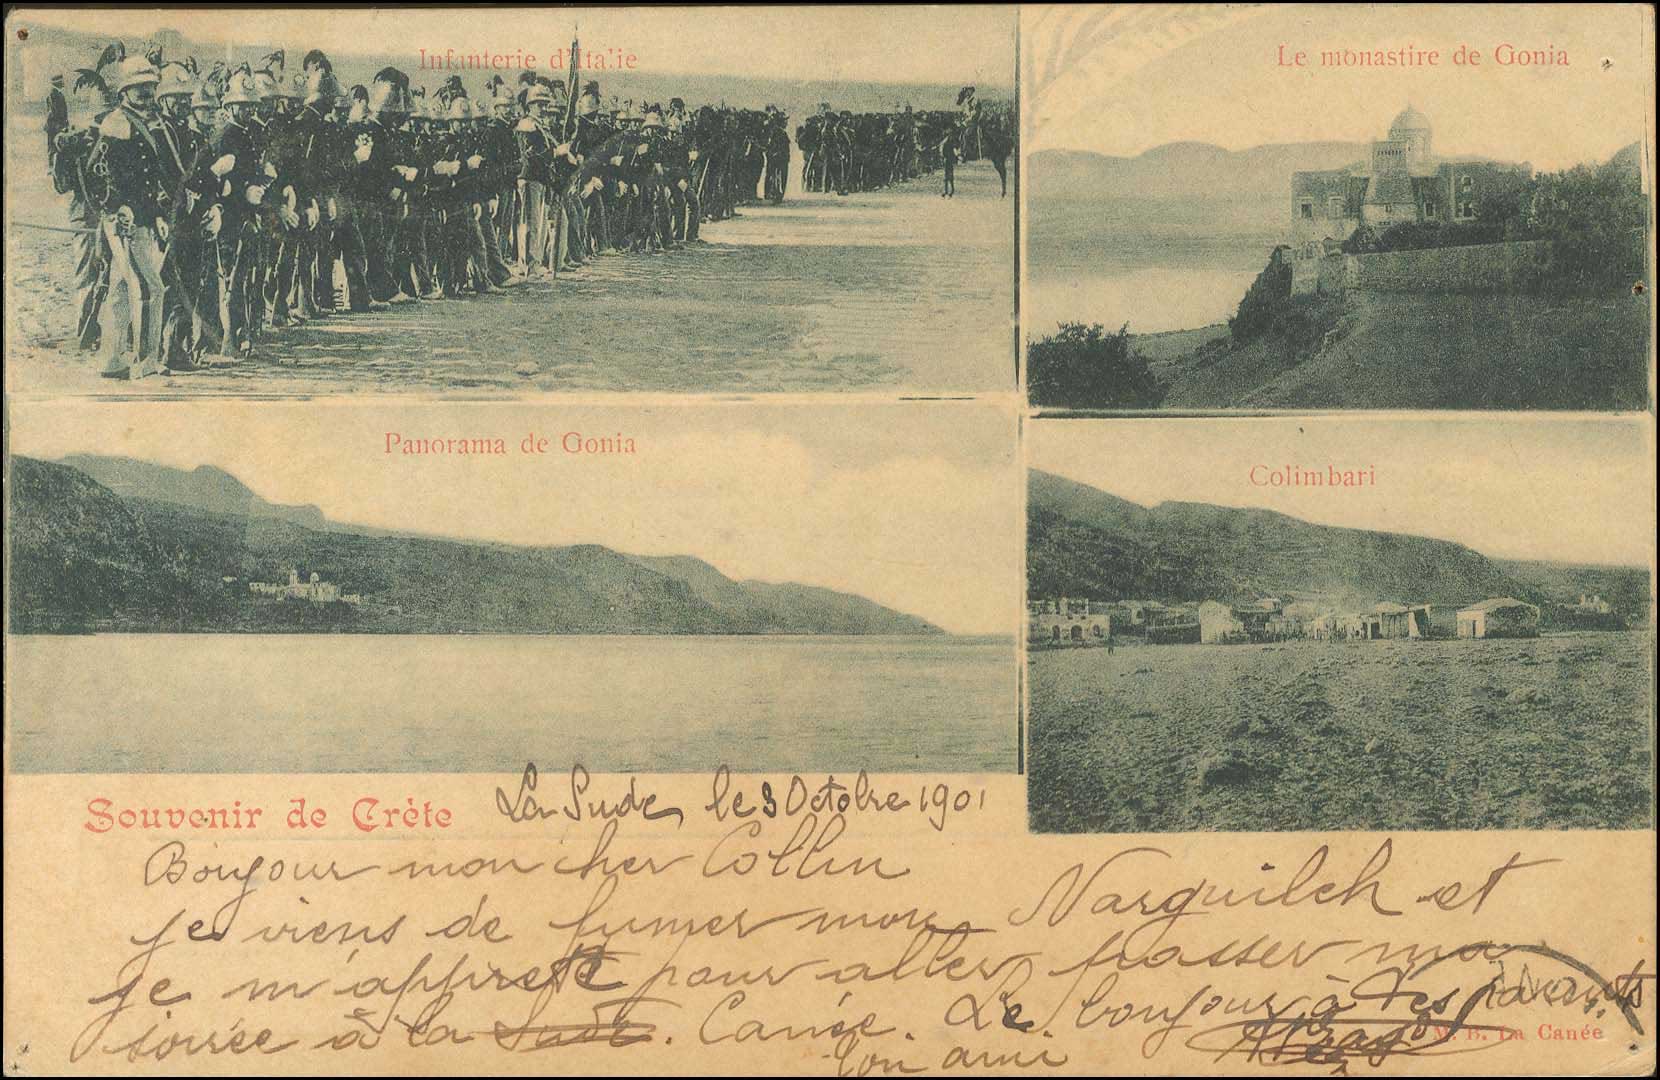 Infanterie d'Italie
Le monastire de Gonia
Panorama de Gonia
Colimbari
Souvenir de Crète
La Sude le 3 Octobre 1901
Bonjour mon cher Collin
je viens de fumer mon Narguileh et
je m'apprete pour aller passer ma
soirée à la Sude. Canée. Le bonjour à tes parents
ton ami
M. B. La Canée